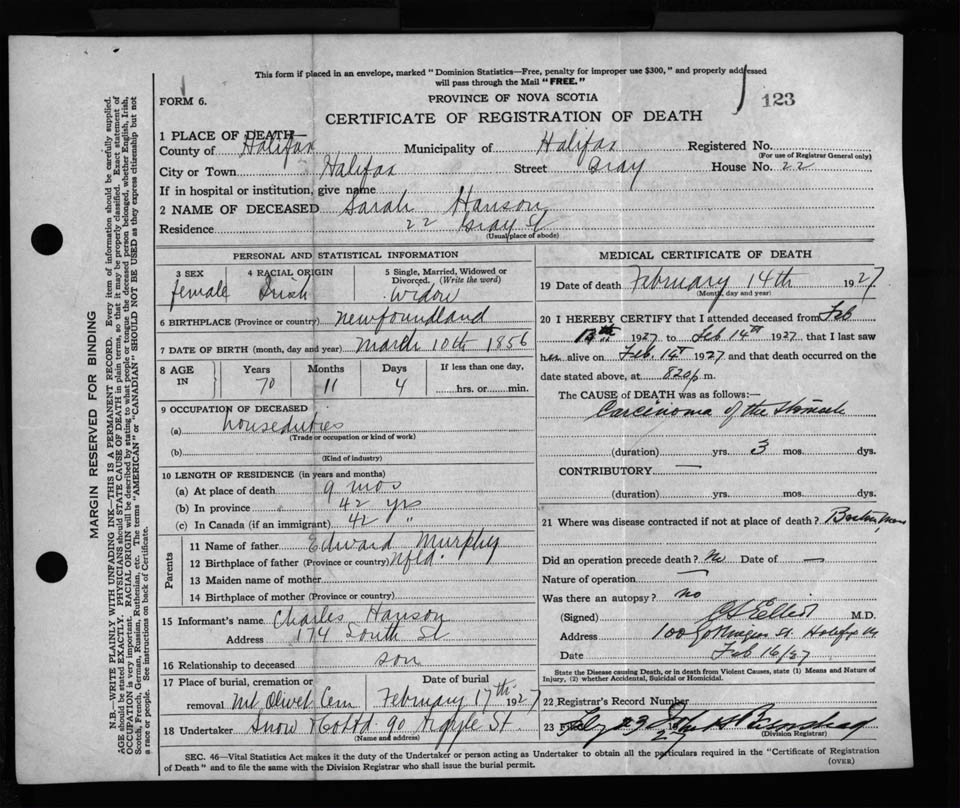 This form if placed in an envelope, marked "Dominion Statistics—Free, penalty for improper use $300," and properly addressed
will pass through the Mail "FREE."
FORM 6.
PROVINCE OF NOVA SCOTIA
123
CERTIFICATE OF REGISTRATION OF DEATH
1 PLACE OF DEATH—
County of Halifax Municipality of Halifax Registered No.
(For use of Registrar General only)
City or Town Halifax Street Gray House No. 22
If in hospital or institution, give name
2 NAME OF DECEASED Sarah Hanson
Residence 22 Gray St
(Usual place of abode)
PERSONAL AND STATISTICAL INFORMATION
3 SEX female
4 RACIAL ORIGIN Irish
5 Single, Married, Widowed or Divorced, (Write the word) widow
6 BIRTHPLACE (Province or country) Newfoundland
7 DATE OF BIRTH (month, day and year) March 10th 1856
8 AGE IN Years Months Days If less than one day,
70 11 4 hrs. or min.
9 OCCUPATION OF DECEASED
(a) houseduties
(Trade or occupation or kind of work)
(b)
(Kind of industry)
10 LENGTH OF RESIDENCE (in years and months)
(a) At place of death 9 mos
(b) In province 42 yrs
(c) In Canada (if an immigrant) 42 "
Parents
11 Name of father Edward Murphy
12 Birthplace of father (Province or country) Nfld.
13 Maiden name of mother
14 Birthplace of mother (Province or country)
15 Informant's name Charles Hanson
Address 174 South St
16 Relationship to deceased son
17 Place of burial, cremation or removal Mt Olivet Cem
Date of burial February 17th 1927
18 Undertaker Snow & Co Ltd 90 Argyle St.
(Name and address)
MEDICAL CERTIFICATE OF DEATH
19 Date of death February 14th 1927
(Month, day and year)
20 I HEREBY CERTIFY that I attended deceased from Feb
1927 to Feb 14th 1927 that I last saw
her alive on Feb 14th 1927 and that death occurred on the
date stated above, at 820 p m.
The CAUSE of DEATH was as follows:—
Carcinoma of the Stomach
(duration) yrs. 3 mos. dys.
CONTRIBUTORY —
(duration) yrs. mos. dys.
21 Where was disease contracted if not at place of death? Boston, Mass
Did an operation precede death? No Date of —
Nature of operation —
Was there an autopsy? no
(Signed) Elliot M.D.
Address 100 Gottingen St. Halifax NS
Date Feb 16/27
State the Disease causing Death, or in death from Violent Causes, state (1) Means and Nature of
Injury, (2) whether Accidental, Suicidal or Homicidal.
22 Registrar's Record Number
23
(Division Registrar)
SEC. 46—Vital Statistics Act makes it the duty of the Undertaker or person acting as Undertaker to obtain all the particulars required in the "Certificate of Registration
of Death" and to file the same with the Division Registrar who shall issue the burial permit.
(OVER)
MARGIN RESERVED FOR BINDING
N.B.—WRITE PLAINLY WITH UNFADING INK—THIS IS A PERMANENT RECORD. Every item of information should be carefully supplied.
AGE should be stated EXACTLY. PHYSICIANS should STATE CAUSE OF DEATH in plain terms, so that it may be properly classified. Exact statement of
OCCUPATION is very important. RACIAL ORIGIN will be described by stating to what people or tongue the deceased person belonged, whether English, Irish,
Scotch, French, German, Russian, Ruthenian, etc. The terms "AMERICAN" or "CANADIAN" SHOULD NOT BE USED as they express citizenship but not
a race or people. See instructions on back of Certificate.